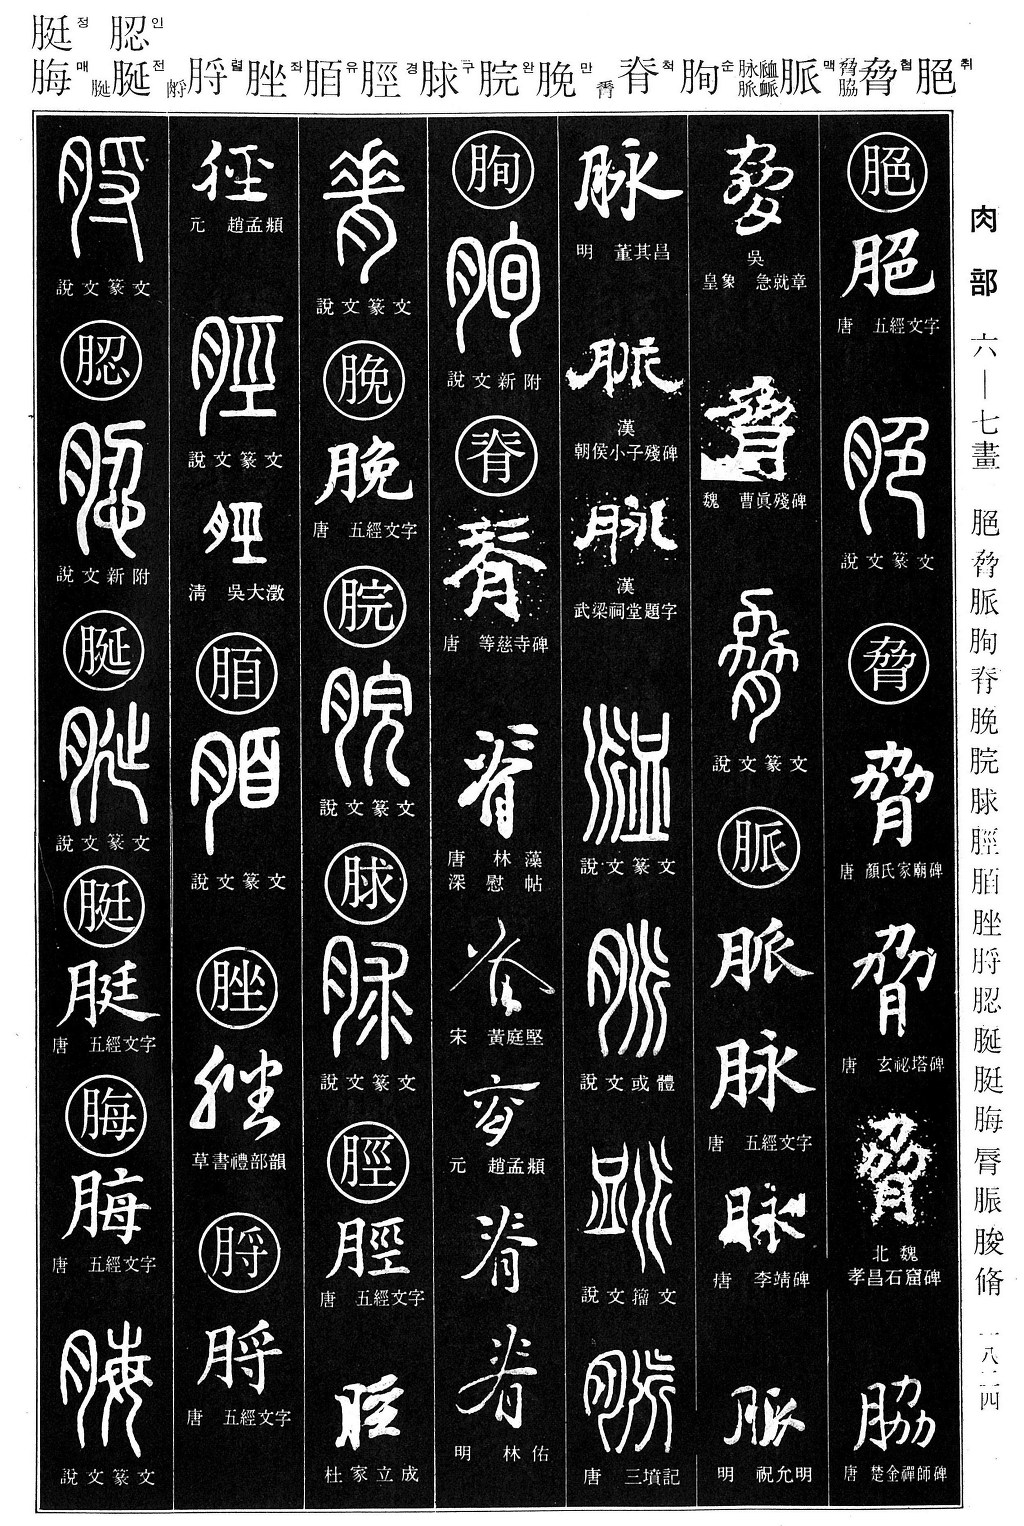 脡정 䏰인
脢매 脠전 脟렬 脞좌 脜유 脛경 脙구 脘완 脕만 脊척 순 脈맥 脅협 脃취
脃
脃
唐 五經文字
脃
說文篆文
脅
脅
唐 顏氏家廟碑
脅
唐 玄祕塔碑
脅
北魏
孝昌石窟碑
脇
唐 楚金禪師碑
脅
吳
皇象 急就章
脅
魏 曹眞殘碑
脅
說文篆文
脈
脈
脉
唐 五經文字
脉
唐 李靖碑
脈
明 祝允明
脉
明 董其昌
脈
漢
朝侯小子殘碑
脉
漢
武梁祠堂題字
說文篆文
說文或體
說文籀文
唐 三墳記
說文新附
脊
脊
唐 等慈寺碑
脊
唐 林藻
深慰帖
脊
宋 黃庭堅
脊
元 趙孟頫
脊
脊
明 林佑
說文篆文
脕
脕
唐 五經文字
脘
脘
說文篆文
脙
脙
說文篆文
脛
脛
唐 五經文字
杜家立成
元 趙孟頫
脛
說文篆文
脛
清 吳大澂
脜
脜
說文篆文
脞
脞
草書禮部韻
脟
脟
唐 五經文字
脟
說文篆文
䏰
䏰
說文新附
脠
脠
說文篆文
脡
脡
唐 五經文字
脢
脢
唐 五經文字
脢
說文篆文
肉部 六—七畫 脃脅脈脊脕脘脙脛脜脞脟䏰脠脡脢脣脤脧脩 一八二四